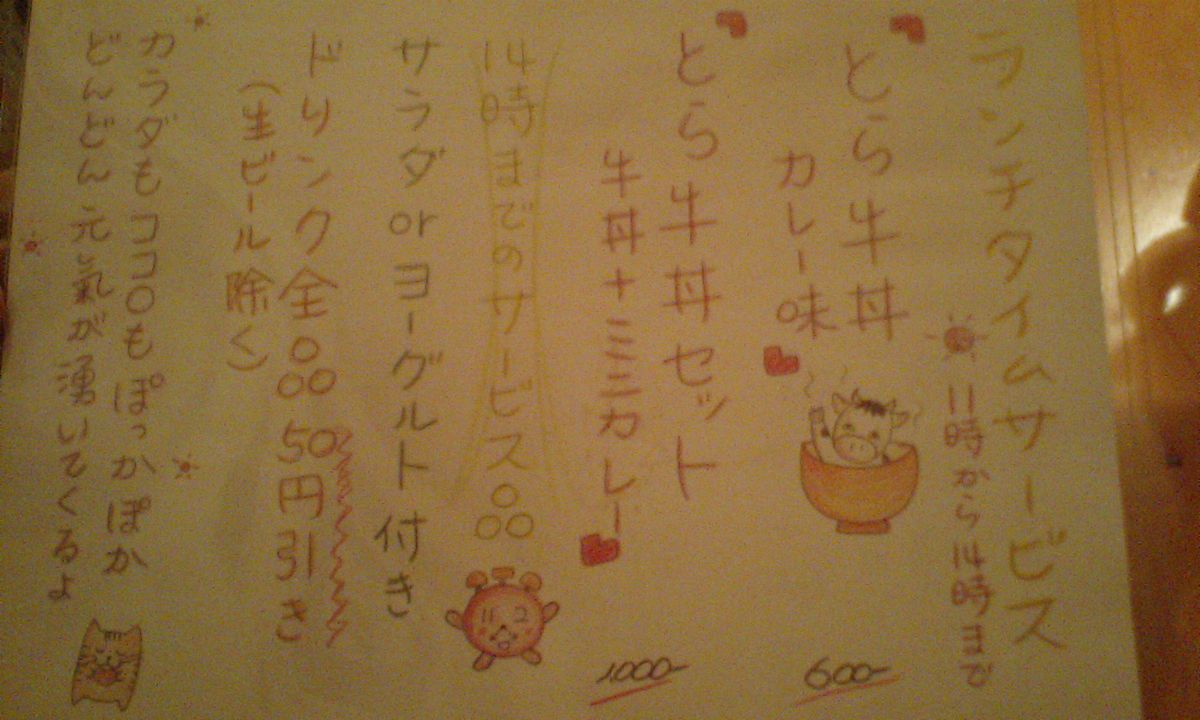 ランチタイムサービス
11時から14時まで
とら牛丼
カレー味
600-
とら牛丼セット
牛丼+ミニカレー
1000-
14時までのサービス品
サラダorヨーグルト付き
ドリンク全品50円引き
(生ビール除く)
カラダもココロもぽっかぽか
どんどん元氣が湧いてくるよ